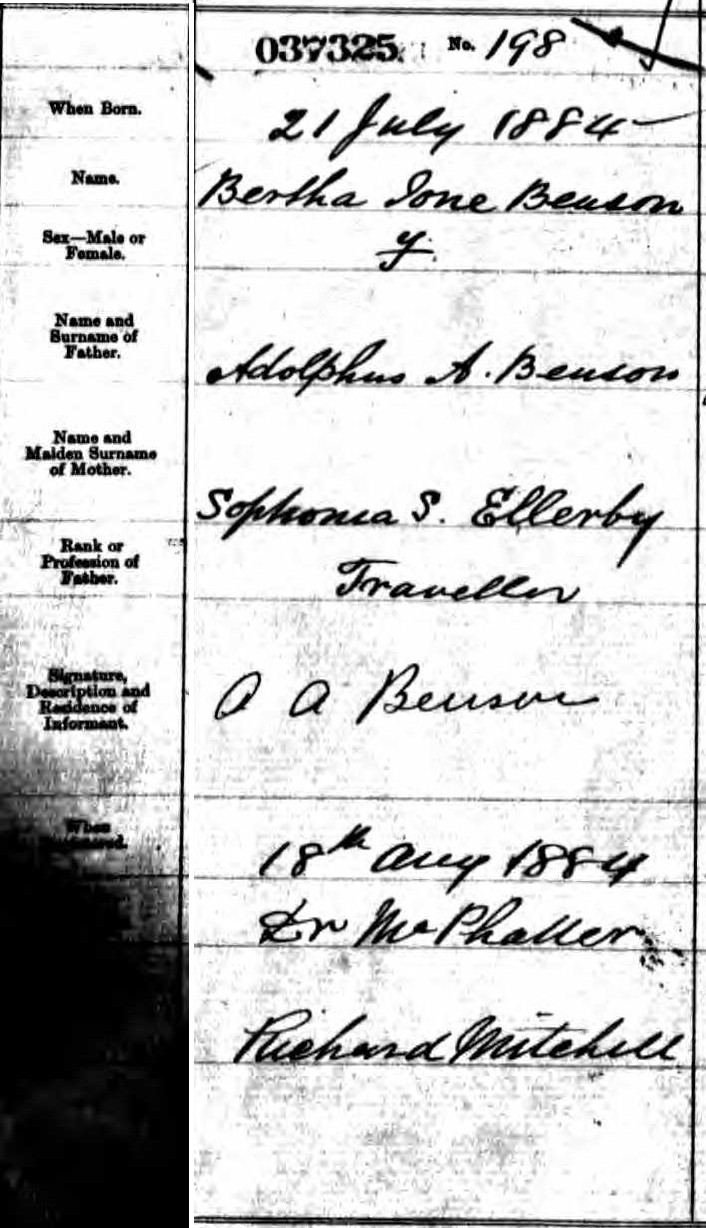 037325 No. 198
When Born.
21 July 1884
Name.
Bertha Ione Benson
Sex—Male or
Female.
f.
Name and
Surname of
Father.
Adolphus A. Benson
Name and
Maiden Surname
of Mother.
Sophonia S. Ellerby
Rank or
Profession of
Father.
Traveller
Signature,
Description and
Residence of
Informant.
A A Benson
When
18th Aug 1884
Dr
Richard Mitchell